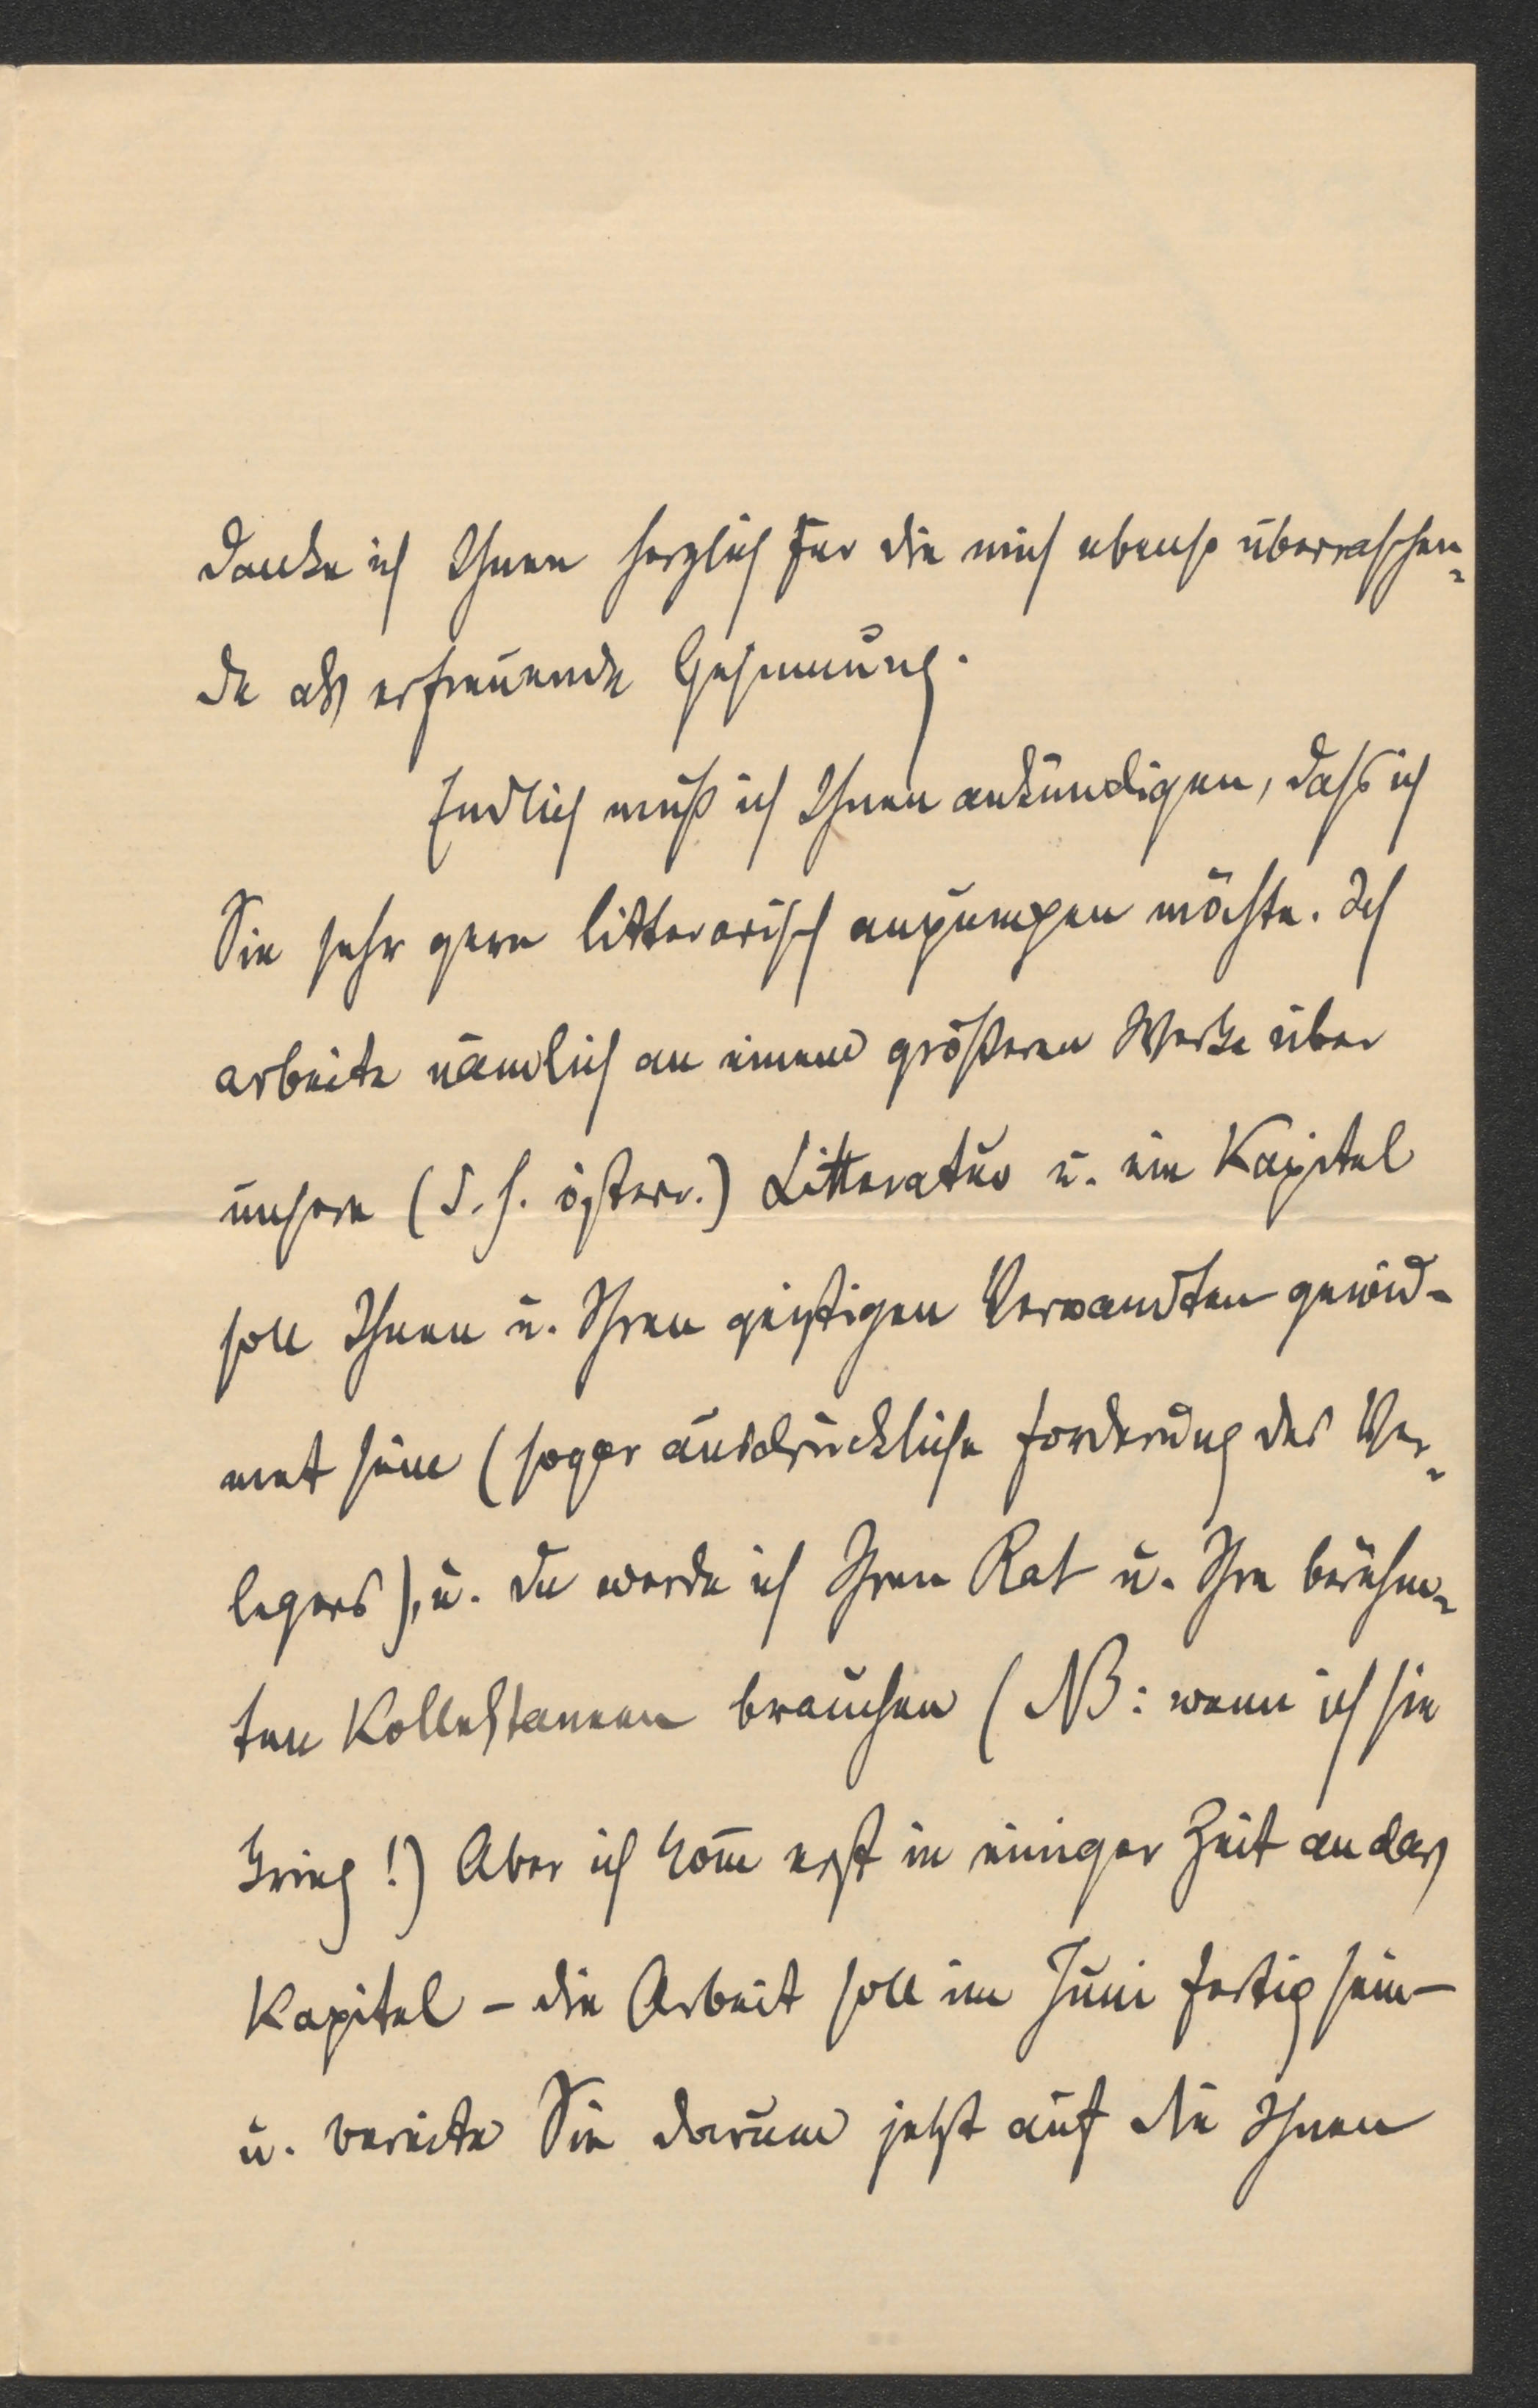 danke ich Ihnen herzlich für die mich ebenso überraschen-
de als erfreuende Gesinnung.
Endlich muß ich Ihnen ankündigen, daß ich
Sie sehr gern litterarisch anpumpen möchte. Ich
arbeite nämlich an einem größeren Werke über
unsere (d. h. österr.) Litteratur u. ein Kapitel
soll Ihnen u. Ihren geistigen Verwandten gewid-
met sein (sogar ausdrückliche Forderung des Ver-
legers), u. da werde ich Ihren Rat u. Ihre berühm-
ten Kollektaneen brauchen (NB: wenn ich sie
krieg!) Aber ich kom̄e erst in einiger Zeit an das
Kapitel – die Arbeit soll im Juni fertig sein –
u. bereite Sie darum jetzt auf die Ihnen